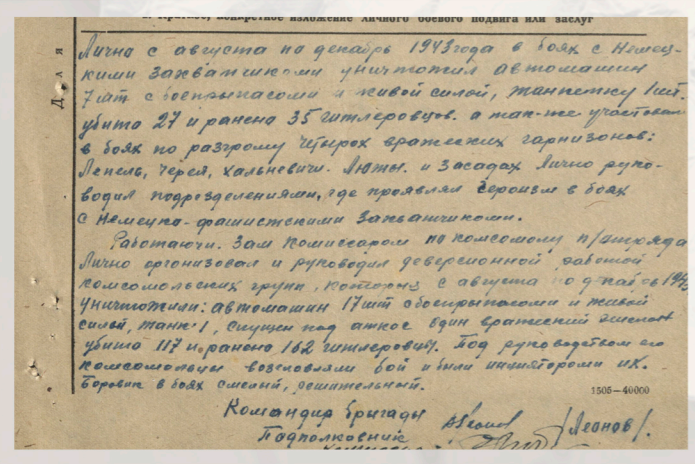 I. Краткое, конкретное изложение личного боевого подвига или заслуг
Для
Лично с августа по декабрь 1943 года в боях с Немец-
кими захватчиками уничтожил автомашин
7 шт с боеприпасами и живой силой, танкетку 1 шт.
убито 27 и ранена 35 гитлеровцев. а так-же участвовал
в боях по разгрому четырох вражеских гарнизонов:
Лепель, Черея, Хальневичи. Люты. и засадах Лично руко-
водил подрозделениями, где проявлял героизм в боях
с Немецко-фашистскими захватчиками.
Работаючи. Зам Комиссаром по комсомолу п/отряда
Лично организовал и руководил диверсионной работой
комсомольских групп, которыя с августа по декабрь 1943
уничтожили: автомашин 17 шт с боеприпасами и живой
силой, танк 1, спущен под откос один вражеский эшелон
убито 117 и ранено 162 гитлеровца. Под руководством его
комсомольцы возглавляли бой и были инициятороми их.
Боровик в боях смелый, решительный.
1505—40000
Командир бригады
Леонов /Леонов/.
Подполковник